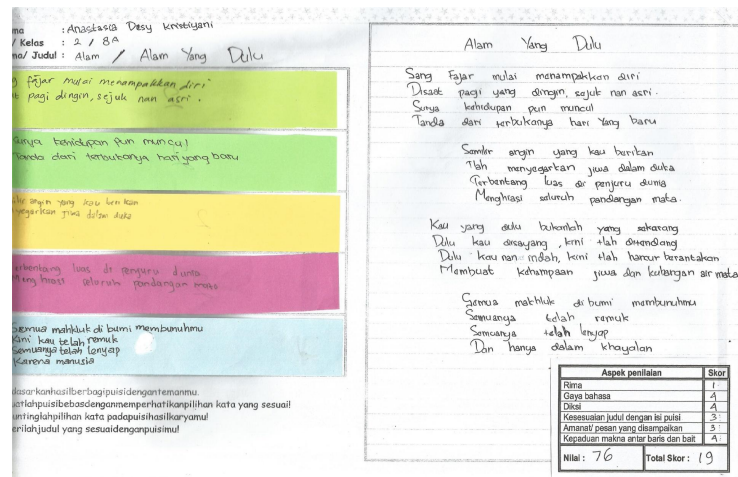 ma : Anastasia Desy Kristiyani
/ Kelas : 2 / 8A
ma/ Judul : Alam / Alam Yang Dulu
g fajar mulai menampakkan diri
t pagi dingin, sejuk nan asri.
Surya kehidupan pun muncul
Tanda dari terbukanya hari yang baru
angin yang kau berikan
yegarkan jiwa dalam duka
erbentang luas di penjuru dunia
Menghiasi seluruh pandangan mata
Semua mahkluk di bumi membunuhmu
Kini kau telah remuk
Semuanya telah lenyap
Karena manusia
dasarkanhasilberbagipuisidengantemanmu.
uatlahpuisibebasdenganmemperhatikanpilihan kata yang sesuai!
untinglahpilihan kata padapuisihasilkaryamu!
erilahjudul yang sesuaidenganpuisimu!
Alam Yang Dulu
Sang Fajar mulai menampakkan diri
Disaat pagi yang dingin, sejuk nan asri.
Surya kehidupan pun muncul
Tanda dari terbukanya hari Yang baru
Semilir angin yang kau berikan
Tlah menyegarkan jiwa dalam duka
Terbentang luas di penjuru dunia
Menghiasi seluruh pandangan mata.
Kau yang dulu bukanlah yang sekarang
Dulu kau disayang, kini tlah ditendang
Dulu kau nan indah, kini tlah hancur berantakan
Membuat kehampaan jiwa dan kubangan air mata
Semua makhluk di bumi membunuhmu
Semuanya telah remuk
Semuanya telah lenyap
Dan hanya dalam khayalan
Aspek penilaian Skor
Rima 1
Gaya bahasa 4
Diksi 4
Kesesuaian judul dengan isi puisi 3
Amanat/ pesan yang disampaikan 3
Kepaduan makna antar baris dan bait 4
Nilai : 76 Total Skor : 19